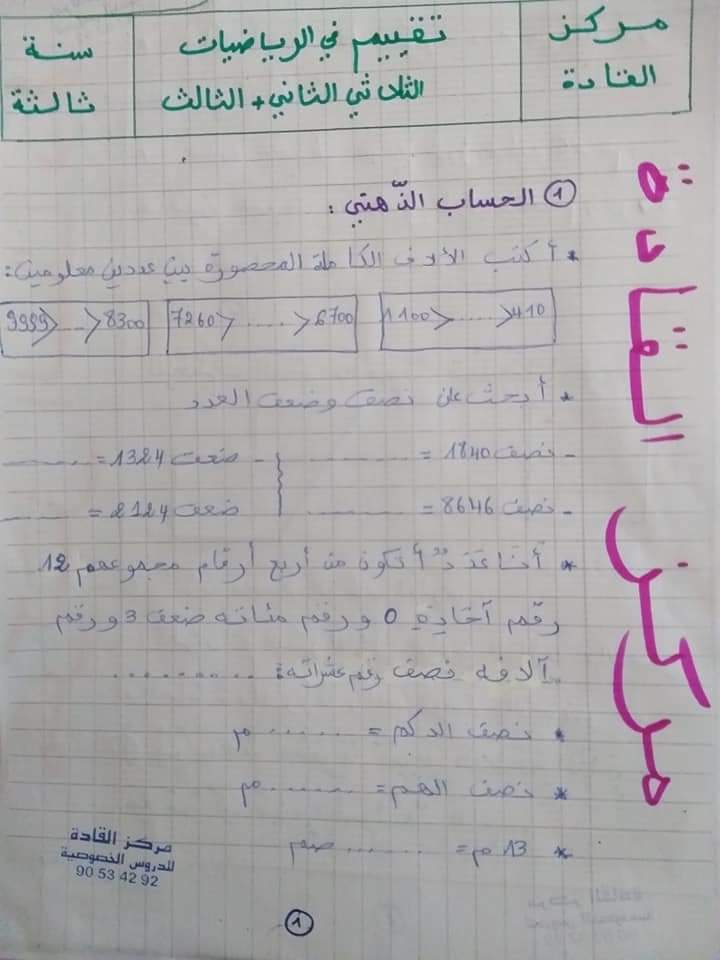 مركز القادة
تقييم في الرياضيات الثلاثي الثاني + الثالث
سنة ثالثة
مركز القادة
① الحساب الذّهني :
* أكتب الآلاف الكاملة المحصورة بين عددين معلومين:
410<......<1100
6700<......<7260
8300<....<9999
* أبحث عن نصف وضعف العدد
- نصف 1840 = ............ - ضعف 1324 = ............
- نصف 8646 = ............ ضعف 2124 = ............
* أنا عَدَدٌ أتكون من أربع أرقام مجموعهم 12
رقم آحاده 0 ورقم مئاته ضعف 3 ورقم
آلافه نصف رقم عشراته: ..........
* نصف الدكم = ........ م
* نصف الهم = ........ م
* 13 م = ........ صم
مركز القادة
للدروس الخصوصية
90 53 42 92
①